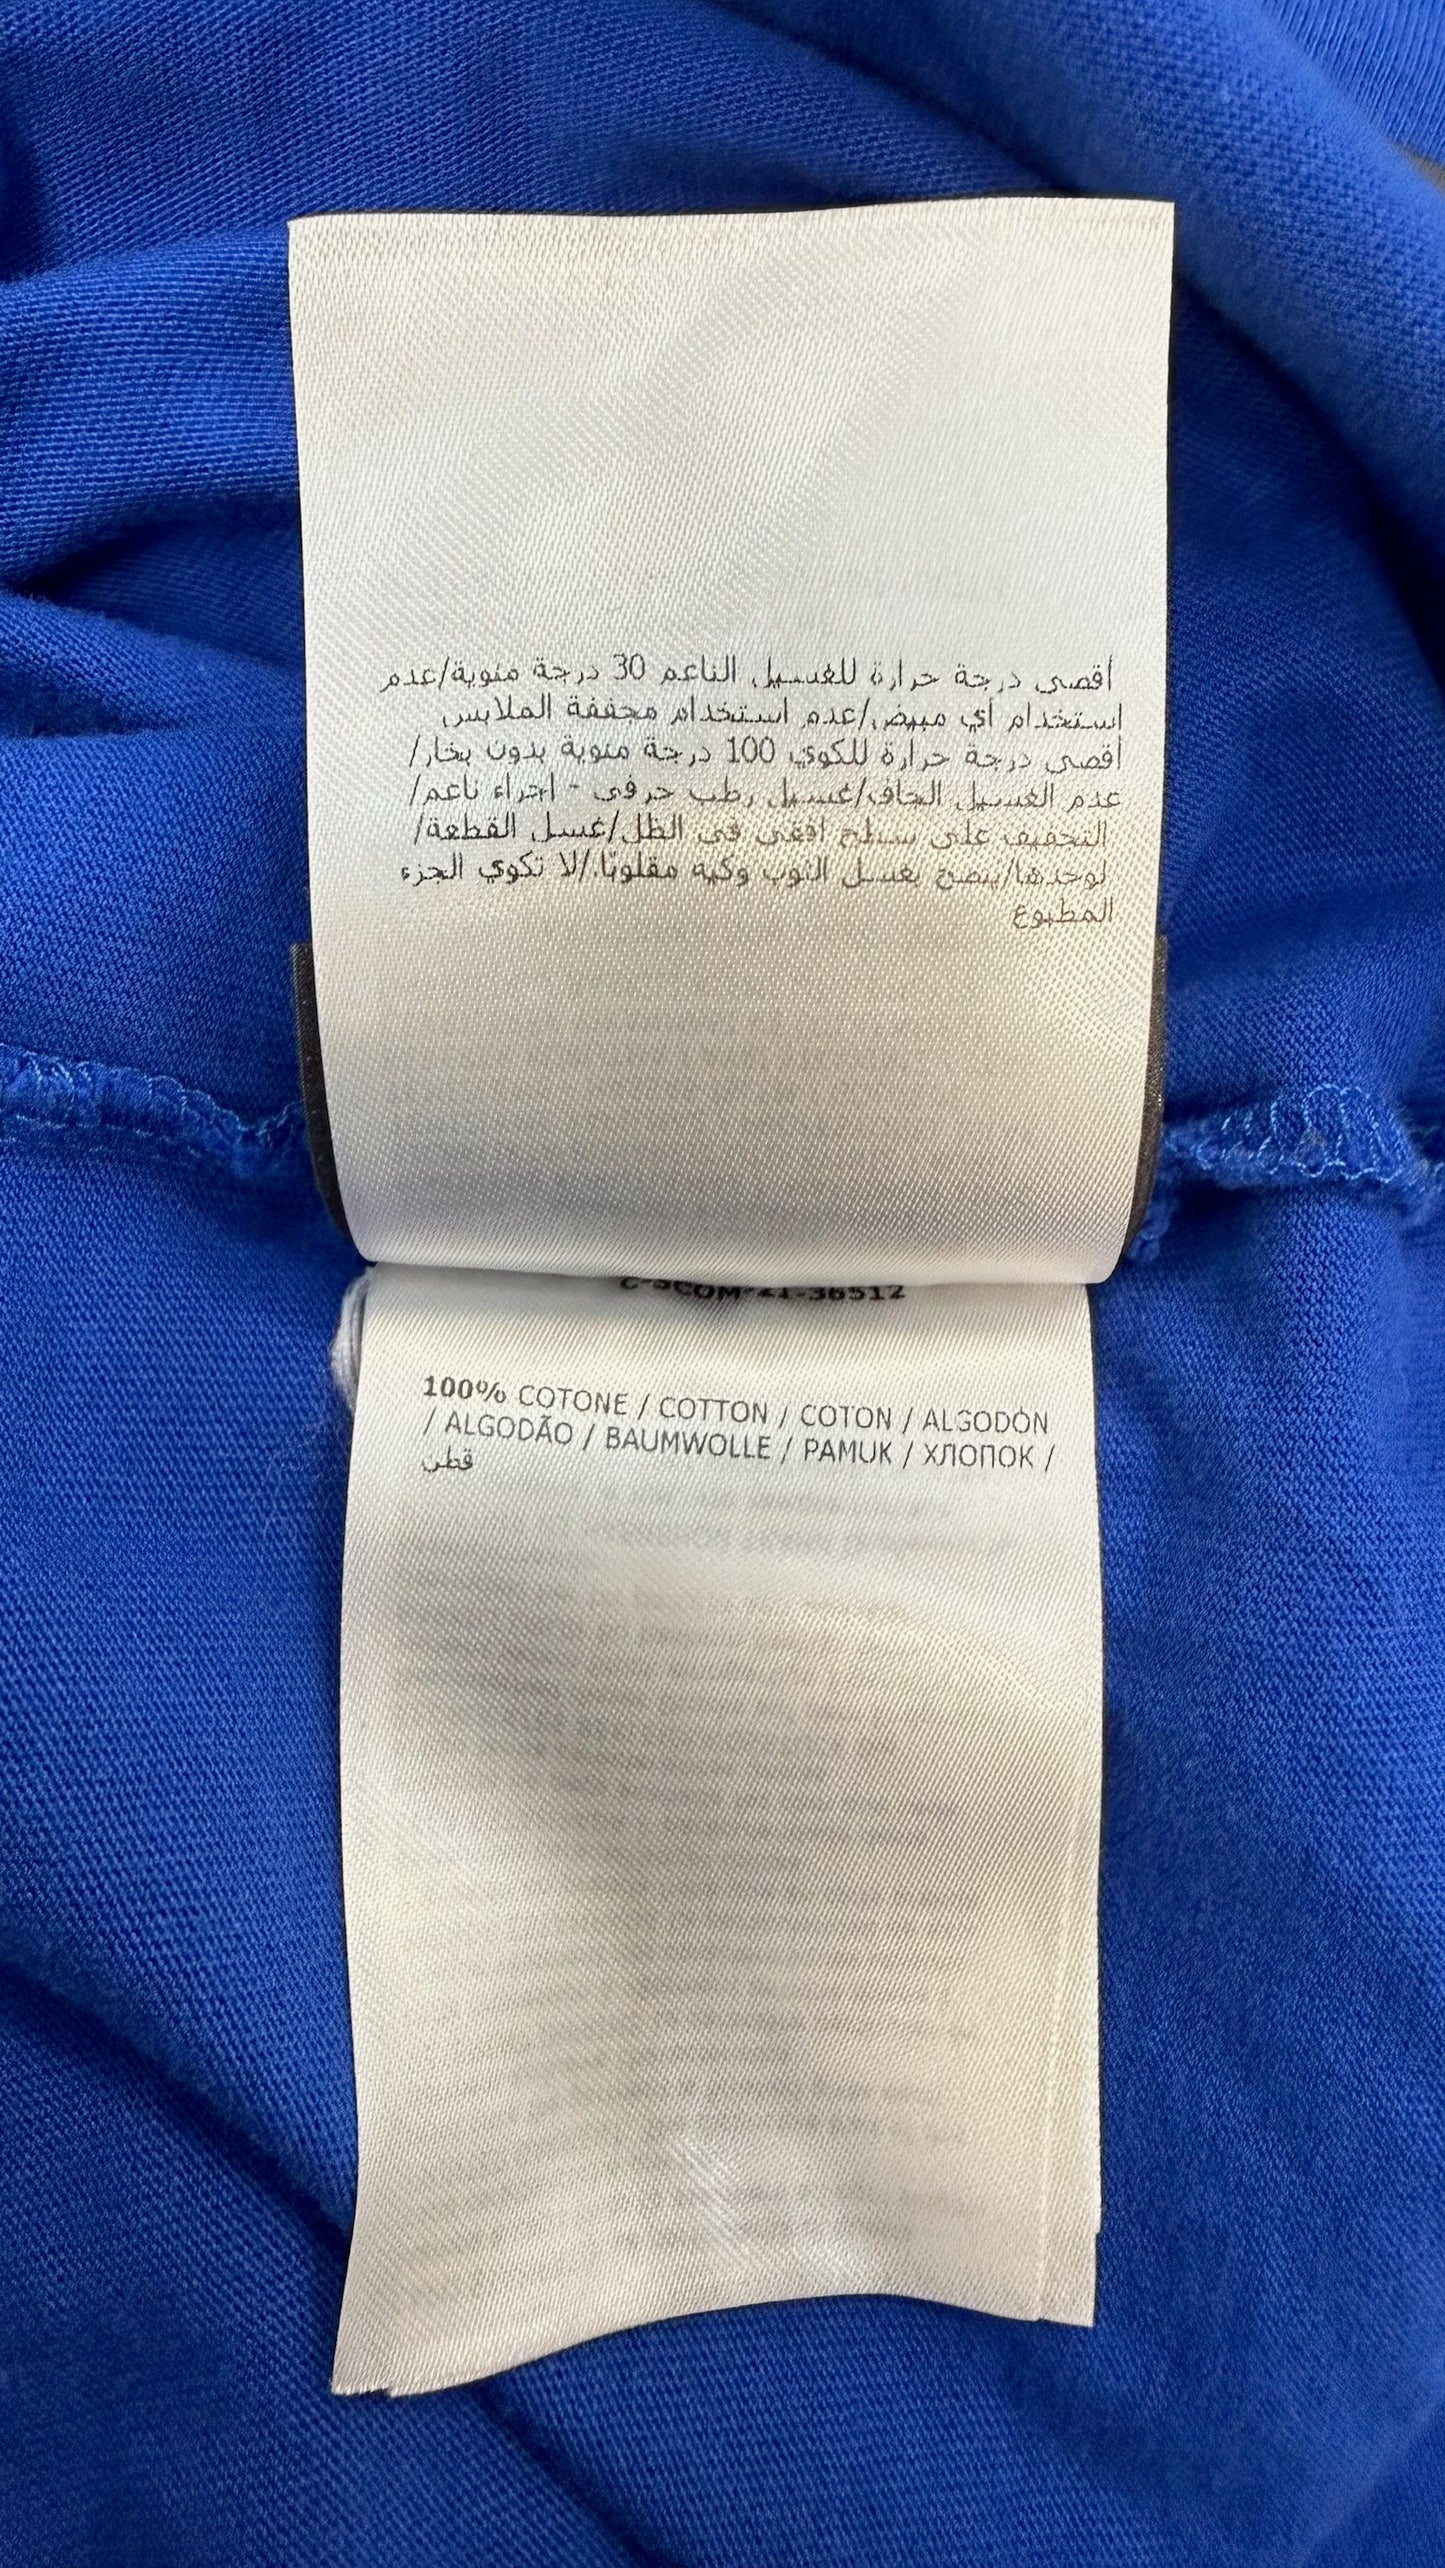 أقصى درجة حرارة للغسيل الناعم 30 درجة مئوية/عدم
استخدام أي مبيض/عدم استخدام مجففة الملابس
أقصى درجة حرارة للكوي 100 درجة مئوية بدون بخار/
عدم الغسيل الجاف/غسيل رطب حرفي - اجراء ناعم/
التجفيف على سطح افقي في الظل/غسل القطعة/
لوحدها/ينصح بغسل الثوب وكيه مقلوبًا./لا تكوي الجزء
المطبوع
C-SCOM-21-36512
100% COTONE / COTTON / COTON / ALGODÓN
/ ALGODÃO / BAUMWOLLE / PAMUK / ХЛОПОК /
قطن